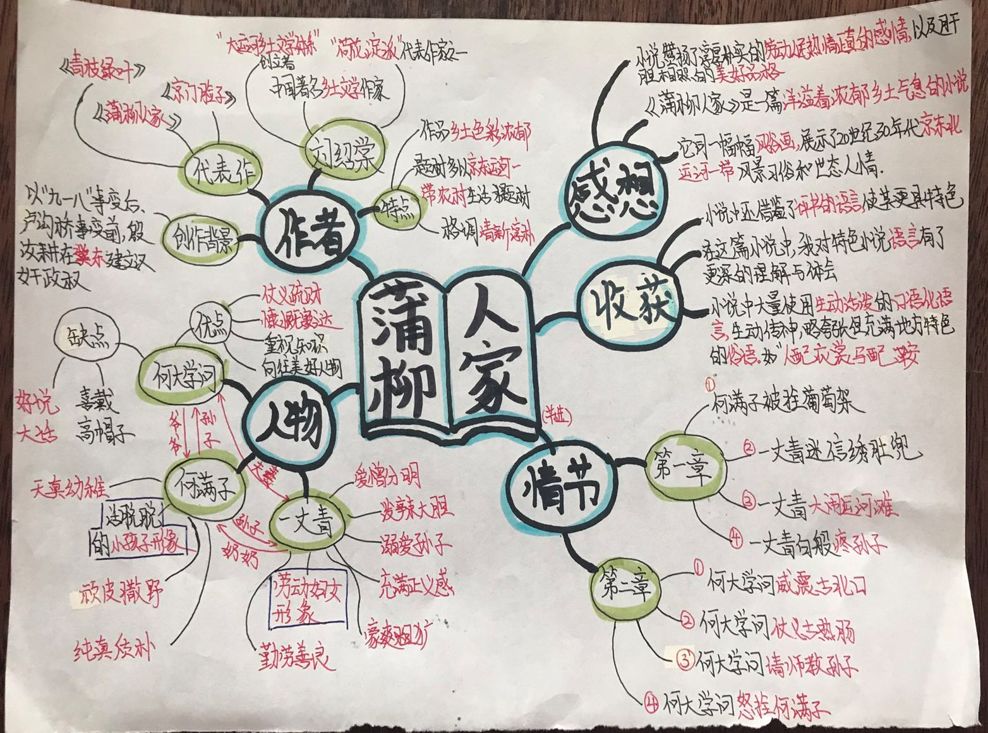 蒲柳
人家
作者
刘绍棠
"大运河乡土文学体系"
创立者
"荷花淀派"代表作家之一
中国著名乡土文学作家
代表作
《青枝绿叶》
《京门脸子》
《蒲柳人家》
特点
作品乡土色彩浓郁
题材多以京东运河一
带农村生活为题材
格调清新淳朴
创作背景
以"九一八"事变后、
卢沟桥事变前,殷
汝耕在冀东建立汉
奸政权
人物
何大学问
优点
仗义疏财
慷慨豁达
重视知识
向往美好人物
缺点
好说
大话
喜戴
高帽子
爷爷
孙子
夫妻
何满子
天真幼稚
活脱脱
的小孩子形象
顽皮撒野
纯真质朴
孙子
奶奶
一丈青
爱憎分明
泼辣大胆
溺爱孙子
充满正义感
豪爽粗犷
劳动妇女
形象
勤劳善良
感想
小说赞扬了京东朴实的劳动人民热情正直的感情,以及肝
胆相照的美好品格
《蒲柳人家》是一篇洋溢着浓郁乡土气息的小说
它可一幅幅风俗画,展示了20世纪30年代京东北
运河一带风景习俗和世态人情.
收获
小说中还借鉴了评书的语言使其更具特色
在这篇小说中,我对特色小说语言有了
更深的理解与体会
小说中大量使用生动活泼的口语化语
言,生动传神,略夸张但充满地方特色
的俗语,如"人配衣裳马配鞍
情节
第一章
①何满子被拴葡萄架
②一丈青迷信绣肚兜
③一丈青大闹运河滩
④一丈青百般疼孙子
第二章
①何大学问威震古北口
②何大学问仗义古热肠
③何大学问请师教孙子
④何大学问怒拴何满子